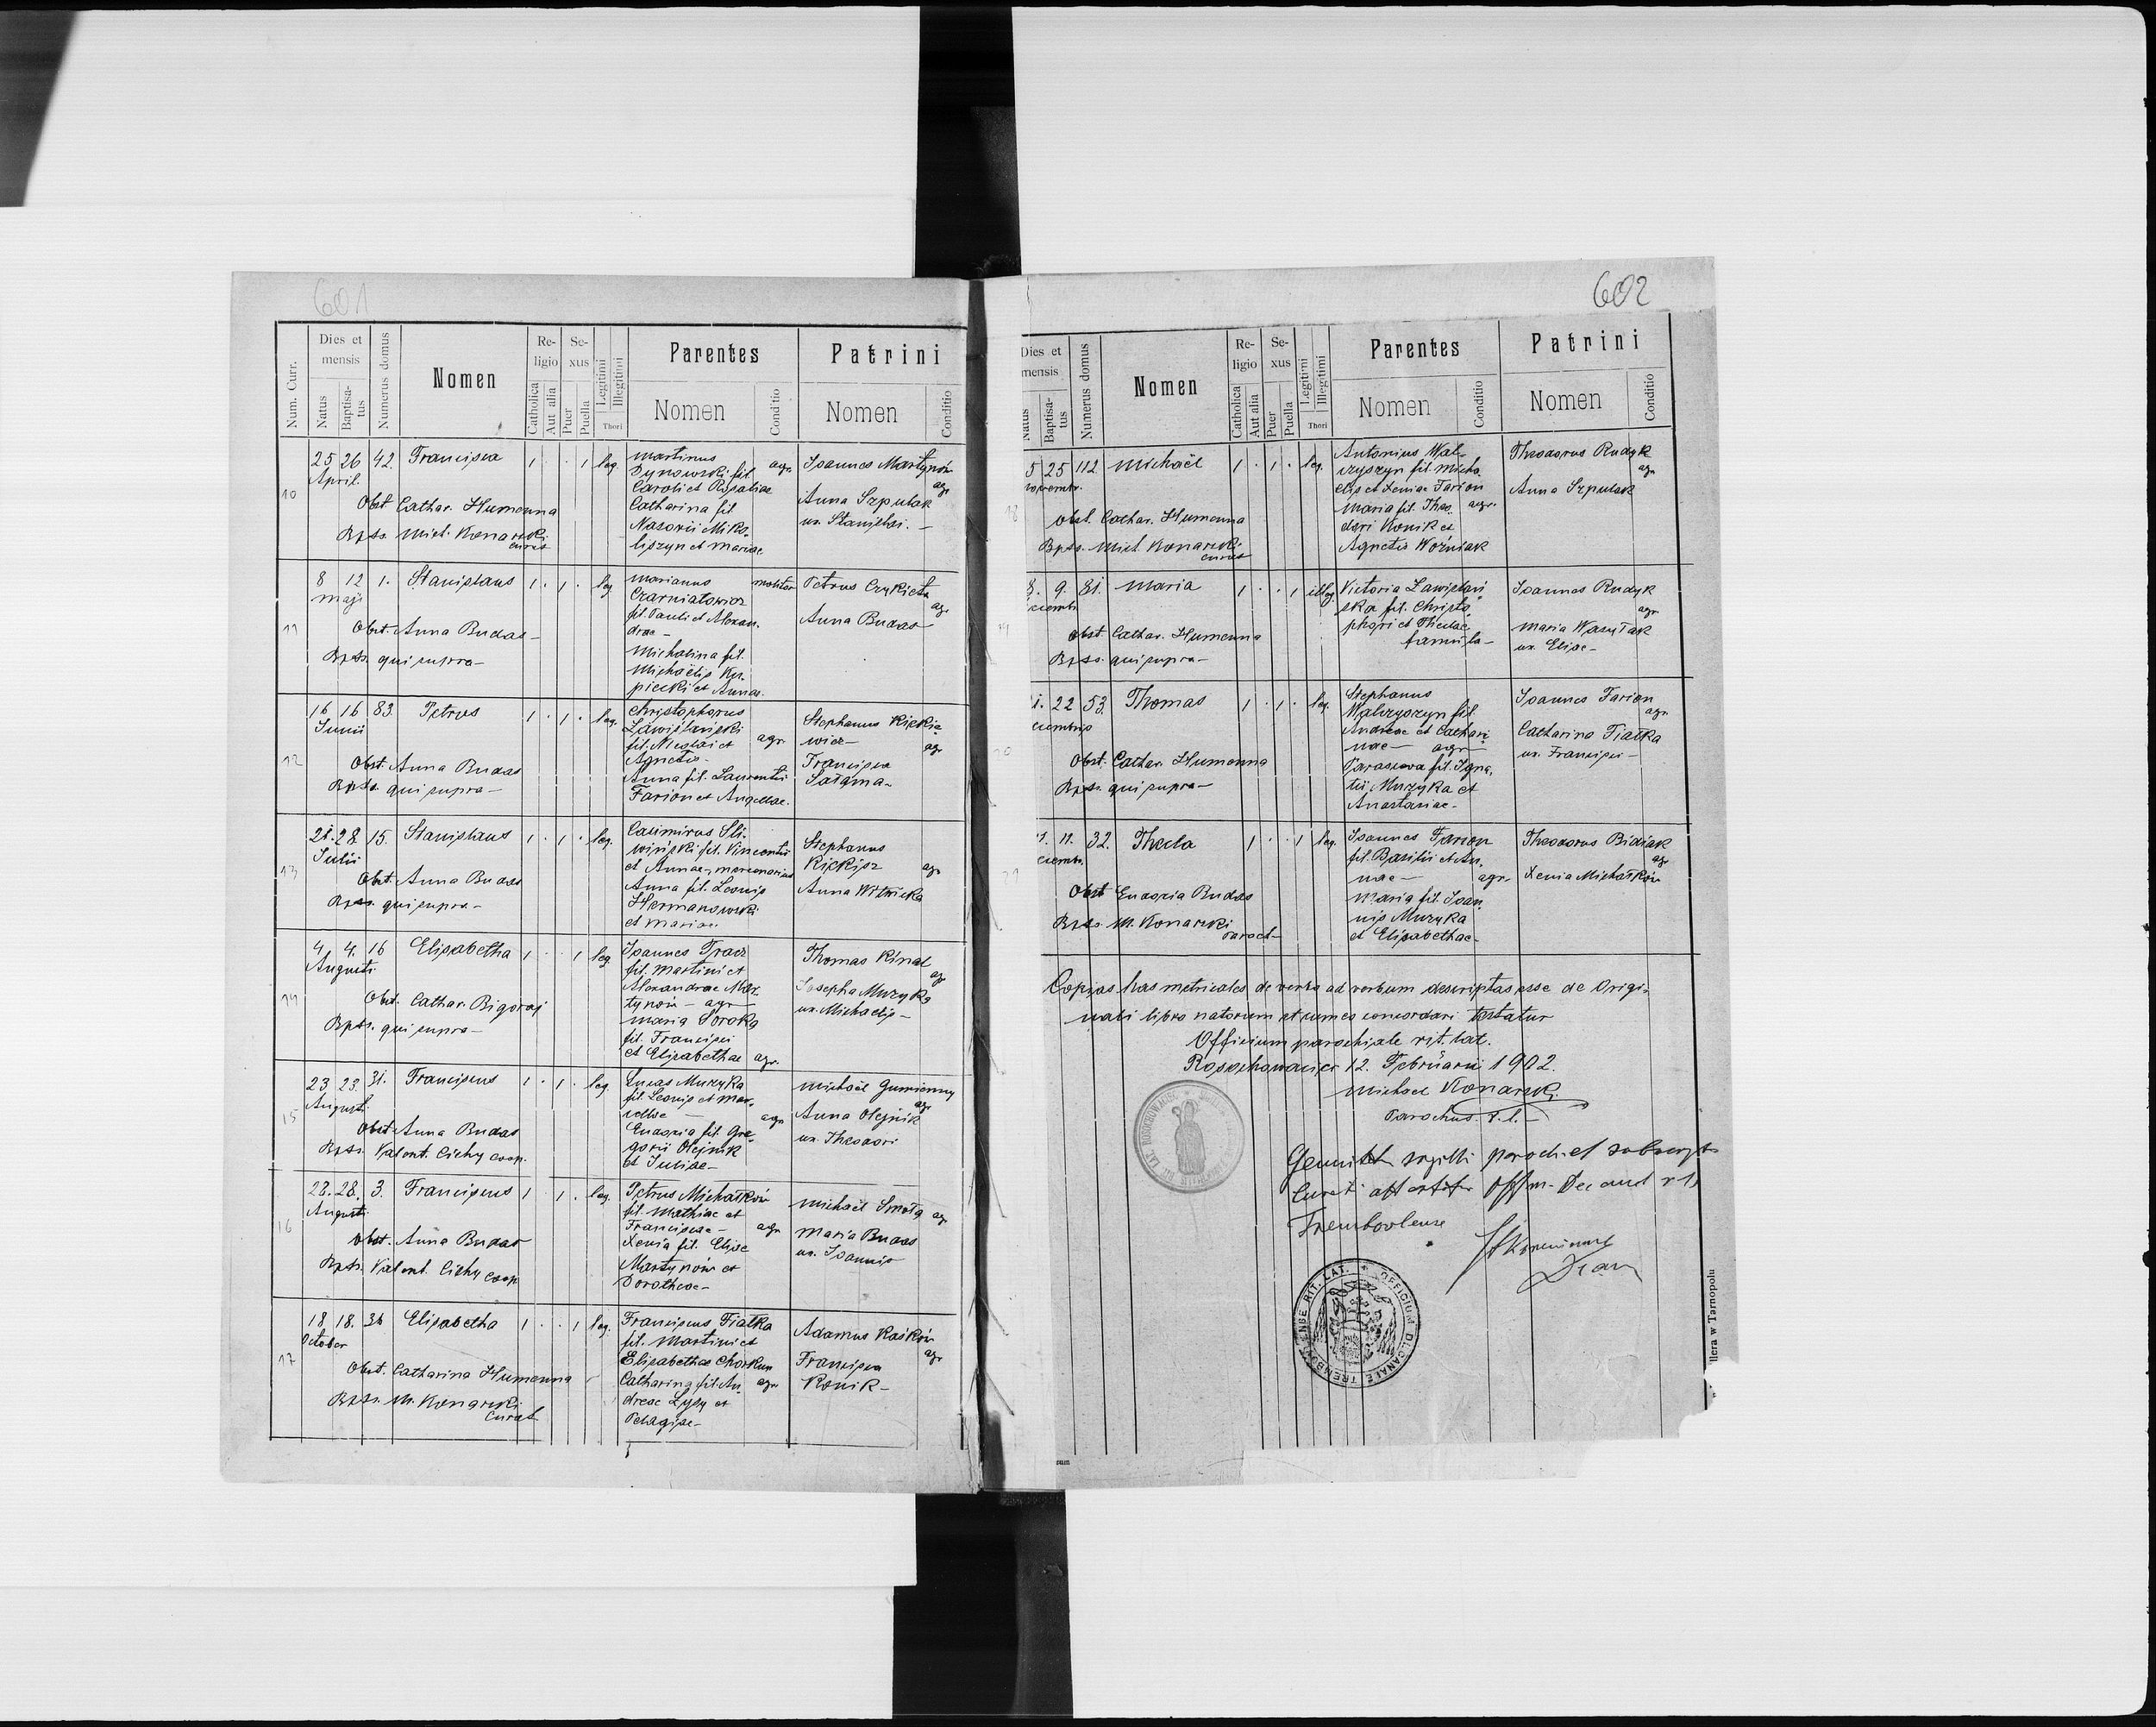 601
Num. Curr.
Dies et mensis
Natus
Baptisa-tus
Numerus domus
Nomen
Re-ligio
Catholica
Aut alia
Se-xus
Puer
Puella
Legitimi
Illegitimi
Thori
Parentes
Nomen
Conditio
Patrini
Nomen
Conditio
10
25 26 42. Francisca 1 . . 1 leg.
April.
Obst Cathar. Humenna
Bpts. Mich. Konarski
curat
Martinus
Dynowski fil. agr.
Caroli et Rosaliae
Catharina fil
Nasarii Miko-
liszyn et Mariae
Joannes Martynów
agr
Anna Szpulak
ux. Stanislai. -
11
8 12 1. Stanislaus 1 . 1 . leg
Maji
Obst. Anna Budas -
Bpts. qui supra -
Marianus molitor
Czarniatowicz
fil. Pauli et Alexan-
drae -
Michalina fil.
Michaëlis Ku-
piecki et Annae.
Petrus Czykieta
agr
Anna Budas
12
16 16 83. Petrus 1 . 1 . leg.
Junii
Obst. Anna Budas
Bpts. qui supra -
Christophorus
Zawiślański
fil. Nicolai et agr
Agnetis -
Anna fil. Laurentii
Farion et Angellae.
Stephanus Kickie-
wicz - agr
Francisca
Sałama -
13
21. 28. 15. Stanislaus 1 . 1 . leg.
Julii
Obst. Anna Budas
Bpts. qui supra -
Casimirus Śli-
wiński fil. Vincentii
et Annae, mercenarius
Anna fil. Leonis
Hermanowski
et Mariae.
Stephanus
Kickisz agr
Anna Witwicka
14
4. 4. 16 Elisabetha 1 . . 1 leg
Augusti
Obst. Cathar. Bigoraj
Bpts. qui supra -
Joannes Tracz
fil. Martini et
Alexandrae Mar-
tynów - agr
Maria Soroka
fil. Francisci
et Elisabethae agr.
Thomas Kinal
agr
Josepha Muzyka
ux. Michaelis -
15
23 23. 31. Franciscus 1 . 1 . leg.
August.
Obst. Anna Budas
Bpts. Valent. Cichy coop.
Lucas Muzyka
fil. Leonis et Mar-
cellae - agr
Eudoxia fil. Gre-
gorii Olejnik
et Juliae -
Michaël Gumienny
agr
Anna Olejnik
ux. Theodori
16
28. 28. 3. Franciscus 1 . 1 . leg.
Augusti
Obst. Anna Budas
Bpts. Valent. Cichy coop
Petrus Michałków
fil. Mathiae et
Franciscae - agr
Xenia fil. Eliae
Martynów et
Dorotheae -
Michaël Smoła agr
Maria Budas
ux. Joannis
17
18 18. 36 Elisabetha 1 . . 1 leg.
October
Obst. Catharina Humenna
Bpts. M. Konarski
Curat
Franciscus Fiałka
fil. Martini et
Elisabethae Chorkun
Catharina fil. An- agr
dreae Łysy et
Pelagiae -
Adamus Kaśków
agr
Francisca
Konik -
602
Dies et mensis
Natus
Baptisa-tus
Numerus domus
Nomen
Re-ligio
Catholica
Aut alia
Se-xus
Puer
Puella
Legitimi
Illegitimi
Thori
Parentes
Nomen
Conditio
Patrini
Nomen
Conditio
18
5 25 112 Michaël 1 . 1 . leg.
Obst. Cathar. Humenna
Bpts. Mich Konarski
curat
Antonius Wal-
czyszyn fil. Micha-
elis et Xeniae Farion
Maria fil. Theo- agr.
dori Konik et
Agnetis Woźniak
Theodorus Rudyk
agr
Anna Szpulak
19
8. 9. 81. Maria 1 . . 1 illeg
Obst Cathar. Humenna
Bpts. qui supra -
Victoria Zawiślań-
ska fil. Christo-
phori et Theclae
famula -
Joannes Rudyk
agr
Maria Wasyłak
ux. Eliae -
20
1. 22 53. Thomas 1 . 1 . leg.
Obst. Cathar. Humenna
Bpts. qui supra -
Stephanus
Walczyszyn fil.
Andreae et Cathari-
nae - agr
Parasceva fil. Igna-
tii Muzyka et
Anastasiae -
Joannes Farion
agr
Catharina Fiałka
ux. Francisci -
21
11. 11. 32. Thecla 1 . . 1 leg.
Obst Eudoxia Budas
Bpts. M. Konarski
Paroch -
Joannes Farion
fil. Basilii et An-
nae - agr.
Maria fil. Joan-
nis Muzyka
et Elisabethae -
Theodorus Bidiak
agr
Xenia Michałków
Copias has metricales de verbo ad verbum descriptas esse de Origi-
nali libro natorum et cum eo concordari testatur
Officium parochiale rit. lat.
Rosochowaciec 12. Februarii 1902.
Michael Konarski
Parochus r. l.
Genuitat sigilli paroch et subscript
Curati attestatur Offm. Decanal r. l.
Trembovlense
Dean
OFFICIUM DECANALE TREMBOVLENSE RIT. LAT.
llera w Tarnopolu